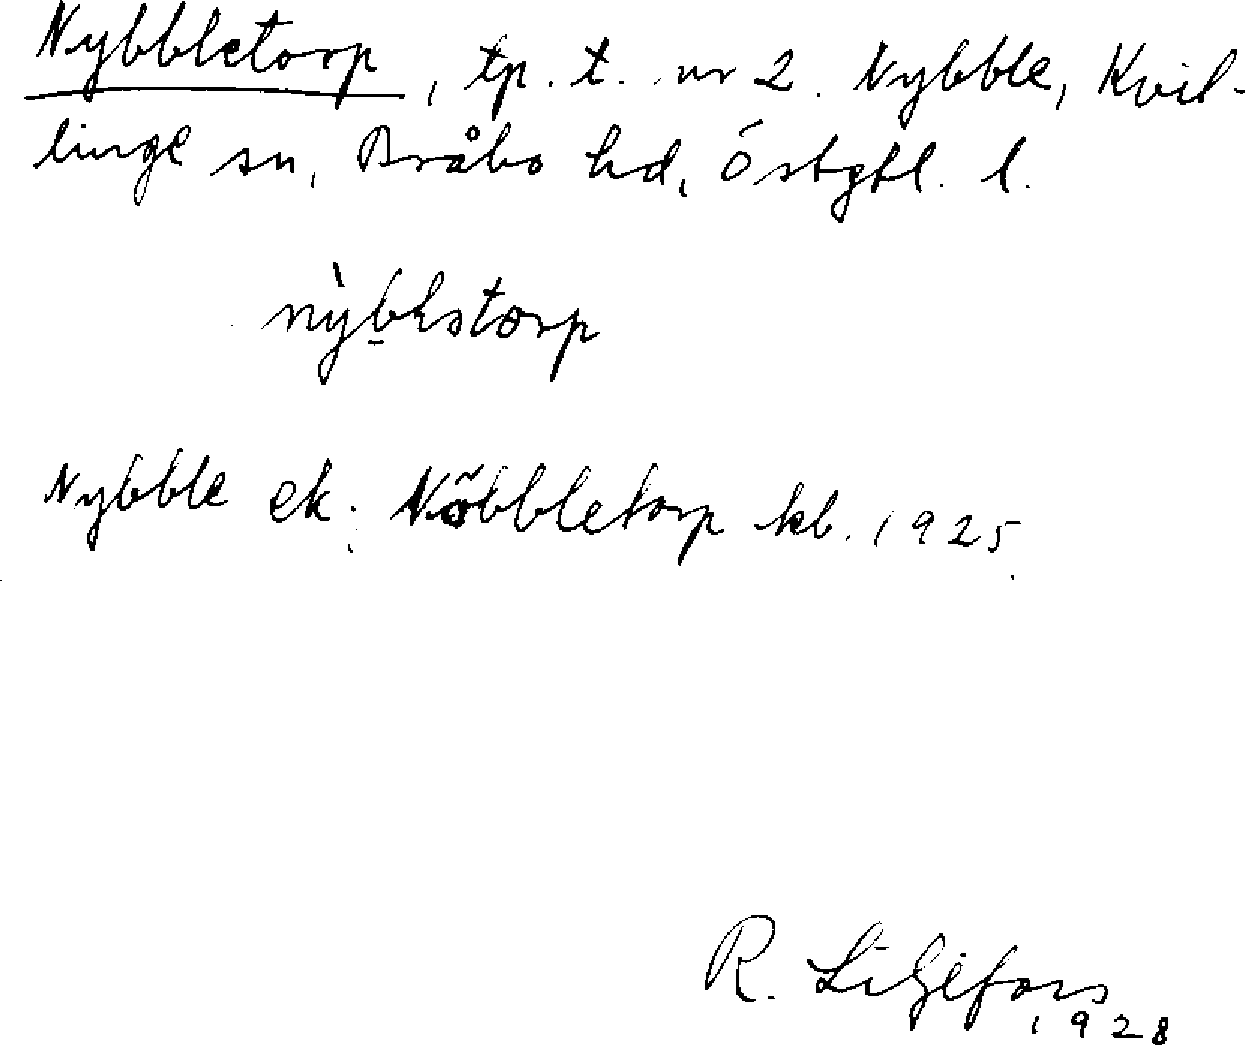 Nybbletorp, tp. t. nr 2. Nybble, Kvil-
linge sn, Bråbo hd, Östgtl. l.
Nybble ek; Nöbbletorp kb. 1925.
R. Liljefors
1928